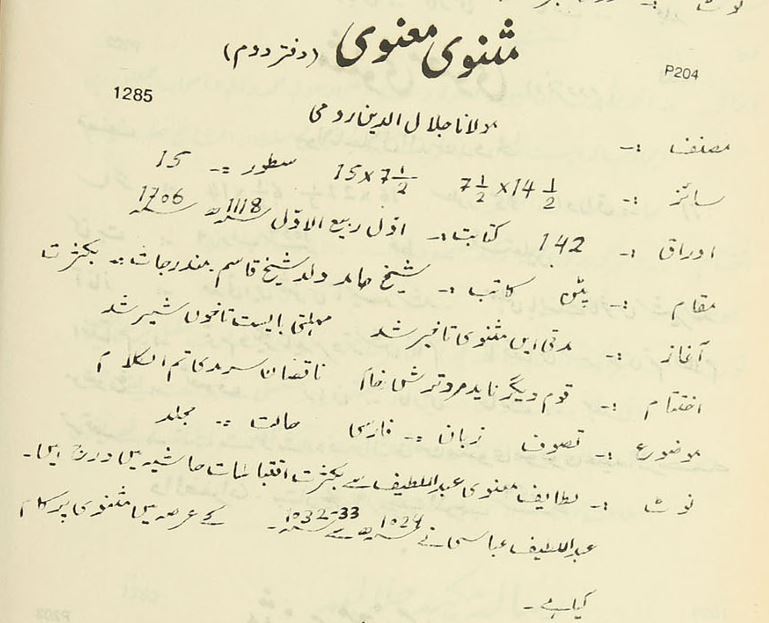 نوٹ :-
مثنوی معنوی (دفتر دوم)
P204
1285
مصنف :- مولانا جلال الدین رومی
سائز :- 7½ x 14½ 15 x 7½ سطور :- 15
اوراق :- 142 کتابت :- اوّل ربیع الاوّل 1118ھ 1706ء
مقام :- پٹن کاتب :- شیخ حامد ولد شیخ قاسم مندرجات :- بکثرت
آغاز :- مدتی این مثنوی تاخیر شد مہلتی بایست تا خون شیر شد
اختتام :- قوم دیگر ناپد و ترش خام ناقصان سرمدی تم الکلام
موضوع :- تصوف زبان :- فارسی حالت :- مجلد
نوٹ :- لطایف معنوی عبداللطیف سے بکثرت اقتباسات حاشیہ میں درج ہیں۔
عبداللطیف عباسی نے 1024ھ سے 1032-33 کے عرصہ میں مثنوی پر کام
کیا ہے۔